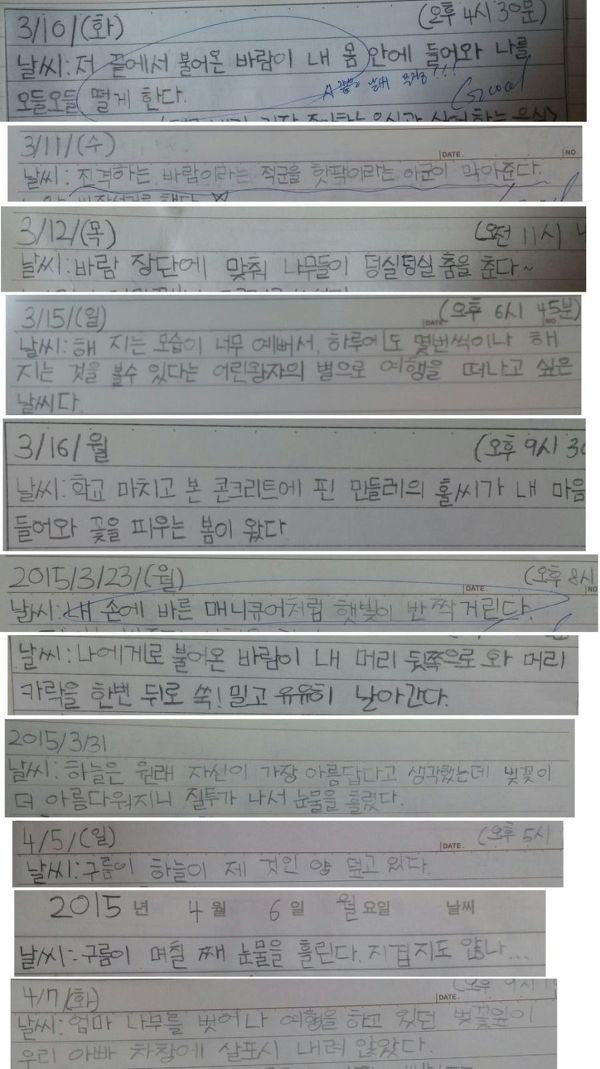 3/10/(화) (오후 4시 30분)
날씨: 저 끝에서 불어온 바람이 내 몸 안에 들어와 나를
오들오들 떨게 한다.
Good
3/11/(수)
DATE. NO
날씨: 진격하는, 바람이라는, 적군을 핫팩이라는 아군이 막아준다.
3/12/(목) (오전 11시
날씨: 바람 장단에 맞춰 나무들이 덩실덩실 춤을 춘다~
3/15/(일) (오후 6시 45분)
날씨: 해 지는 모습이 너무 예뻐서, 하루에도 몇번씩이나 해
지는 것을 볼수 있다는 어린왕자의 별으로 여행을 떠나고 싶은
날씨다.
3/16/월 (오후 9시 30
날씨: 학교 마치고 본 콘크리트에 핀 민들레의 홀씨가 내 마음
들어와 꽃을 피우는 봄이 왔다
2015/3/23/(월) DATE. (오후 8시
NO
날씨: 내 손에 바른 매니큐어처럼 햇빛이 반짝거린다.
날씨: 나에게로 불어온 바람이 내 머리 뒷쪽으로 와 머리
카락을 한번 뒤로 쑥! 밀고 유유히 날아간다.
2015/3/31
날씨: 하늘은 원래 자신이 가장 아름답다고 생각했는데 벚꽃이
더 아름다워지니 질투가 나서 눈물을 흘렸다.
4/5/(일) DATE. (오후 5시
날씨: 구름이 하늘이 제 것인 양 덮고 있다.
2015 년 4 월 6 일 월요일 날씨
날씨: 구름이 며칠 째 눈물을 흘린다. 지겹지도 않나...
4/7/(화) DATE. (오후 9시
날씨: 엄마 나무를 벗어나 여행을 하고 있던 벚꽃잎이
우리 아빠 차창에 살포시 내려 앉았다.